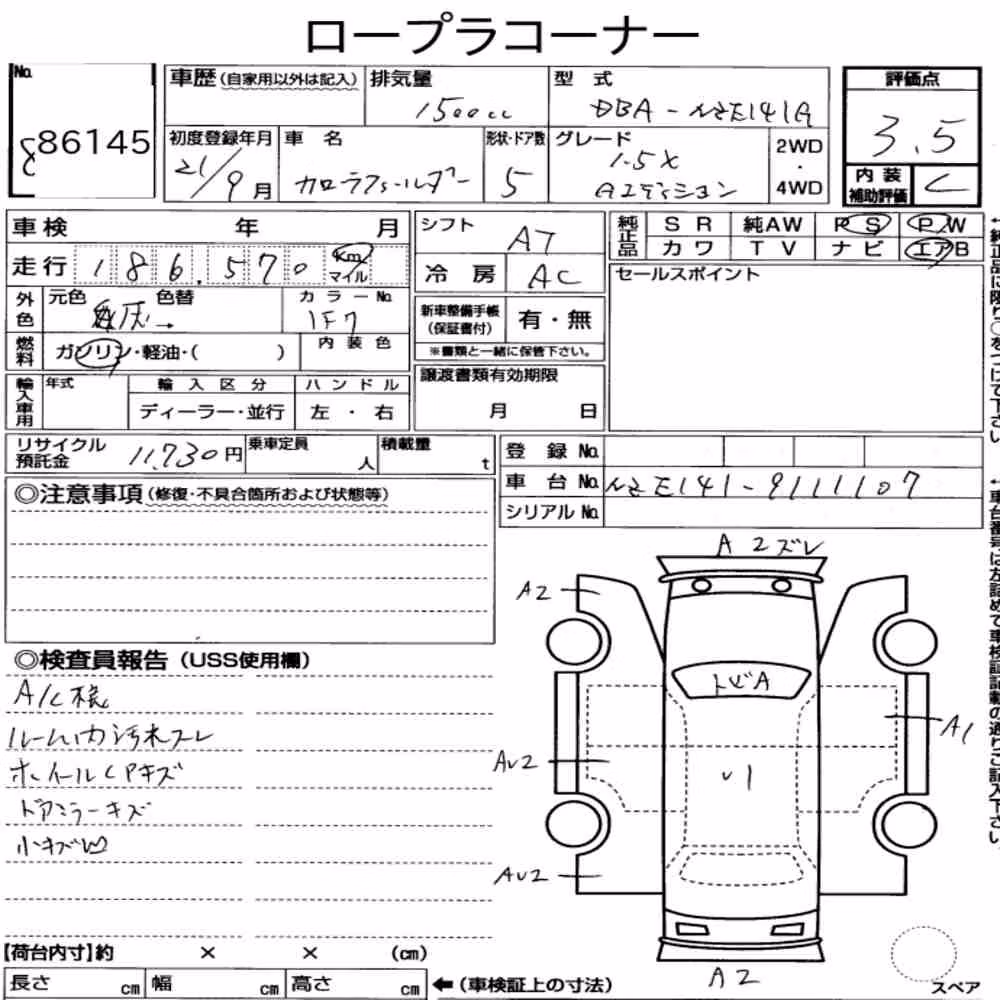 ロープラコーナー
No.
86145
車歴(自家用以外は記入)
排気量
1500cc
型式
DBA-NZE141G
評価点
3.5
初度登録年月
21/9月
車名
カローラフィールダー
形状・ドア数
5
グレード
1.5X
Aエディション
2WD
・
4WD
内装
補助評価
C
車検 年 月
シフト
AT
純正品
SR 純AW PS PW
カワ TV ナビ エアB
走行 186,570 km マイル
冷房
AC
セールスポイント
外色
元色 色替
→
カラーNo.
1F7
新車整備手帳
(保証書付)
有・無
※書類と一緒に保管下さい。
燃料
ガソリン・軽油・( )
内装色
輸入車用
年式
輸入区分
ハンドル
ディーラー・並行
左・右
譲渡書類有効期限
月 日
リサイクル
預託金
11,730円
乗車定員
人
積載量
t
登録No.
車台No. NZE141-9111107
シリアルNo.
◎注意事項(修復・不具合箇所および状態等)
A2ズレ
A2
トビA
A1
AU2
U1
AU2
A2
◎検査員報告(USS使用欄)
A/C
ルーム内汚れスレ
ホイールCPキズ
ドアミラーキズ
小キズ凹
【荷台内寸】約 × × (cm)
長さ cm 幅 cm 高さ cm
←(車検証上の寸法)
スペア
←純正品に限り○をつけて下さい。
←車台番号は左詰めで車検証記載の通りご記入下さい。